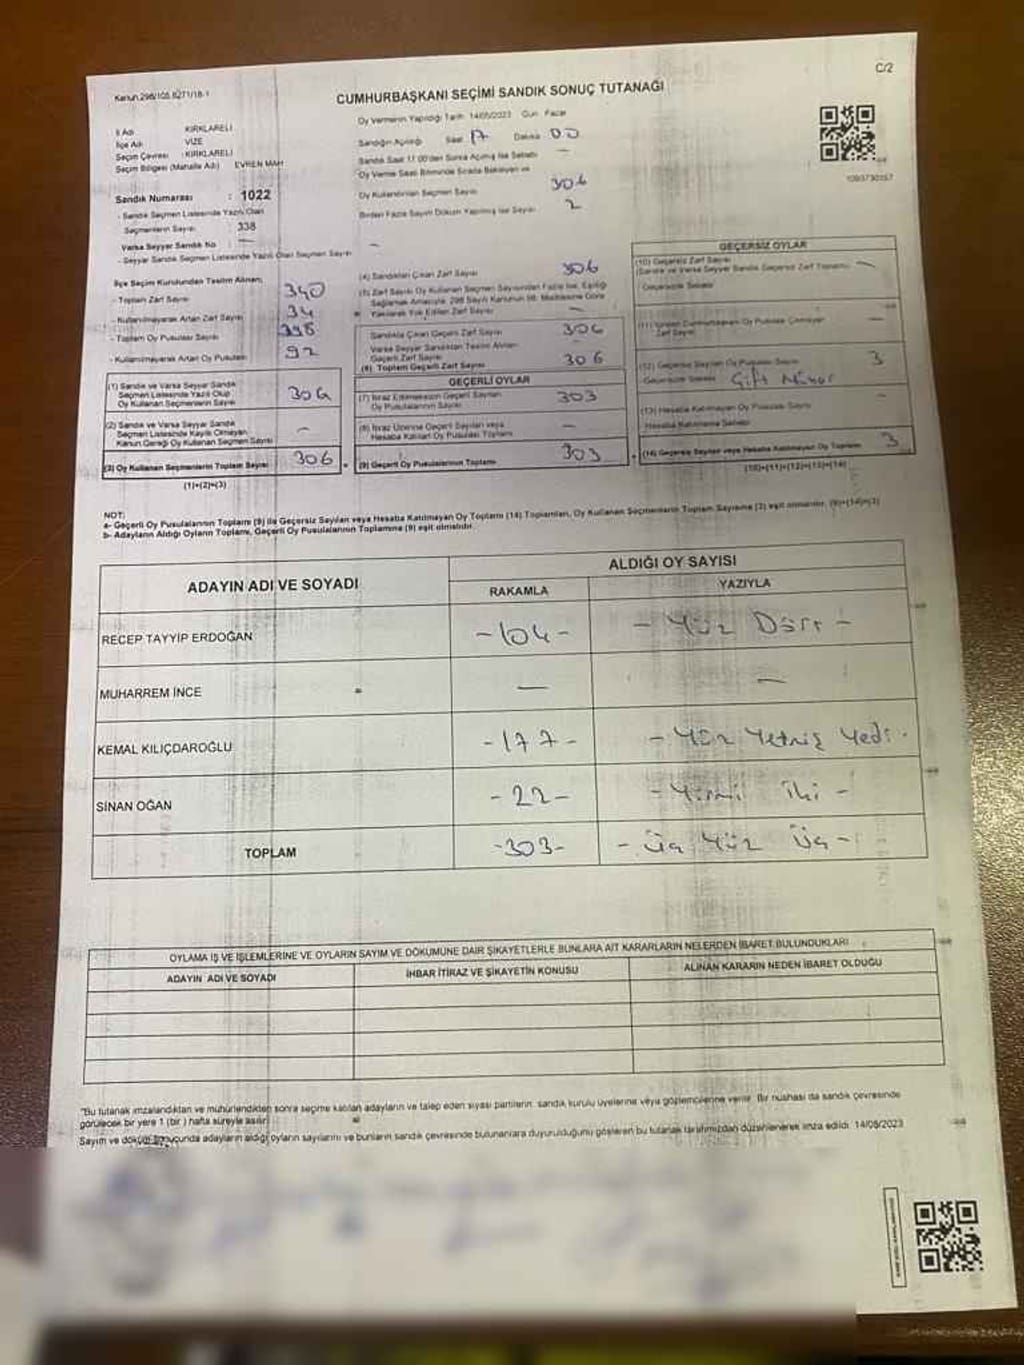 Kanun 298/105 6271/18-1
C/2
CUMHURBAŞKANI SEÇİMİ SANDIK SONUÇ TUTANAĞI
İl Adı : KIRKLARELİ
İlçe Adı : VİZE
Seçim Çevresi : KIRKLARELİ
Seçim Bölgesi (Mahalle Adı) : EVREN MAH
Sandık Numarası : 1022
- Sandık Seçmen Listesinde Yazılı Olan
Seçmenlerin Sayısı 338
Varsa Seyyar Sandık No : —
- Seyyar Sandık Seçmen Listesinde Yazılı Olan Seçmen Sayısı —
Oy Vermenin Yapıldığı Tarih: 14/05/2023 Gün: Pazar
Sandığın Açıldığı Saat 17 Dakika 00
Sandık Saat 17:00'den Sonra Açılmış İse Sebebi —
Oy Verme Saati Bitiminde Sırada Bekleyen ve
Oy Kullandırılan Seçmen Sayısı 306
Birden Fazla Sayım Döküm Yapılmış İse Sayısı 2
İlçe Seçim Kurulundan Teslim Alınan;
- Toplam Zarf Sayısı 340
- Kullanılmayarak Artan Zarf Sayısı 34
- Toplam Oy Pusulası Sayısı
- Kullanılmayarak Artan Oy Pusulası 92
(1) Sandık ve Varsa Seyyar Sandık
Seçmen Listesinde Yazılı Olup
Oy Kullanan Seçmenlerin Sayısı 306
(2) Sandık ve Varsa Seyyar Sandık
Seçmen Listesinde Kayıtlı Olmayan
Kanun Gereği Oy Kullanan Seçmen Sayısı —
(3) Oy Kullanan Seçmenlerin Toplam Sayısı 306
(1)+(2)=(3)
(4) Sandıktan Çıkan Zarf Sayısı 306
(5) Zarf Sayısı Oy Kullanan Seçmen Sayısından Fazla İse, Eşitliği
Sağlamak Amacıyla, 298 Sayılı Kanunun 98. Maddesine Göre
Yakılarak Yok Edilen Zarf Sayısı —
Sandıkta Çıkan Geçerli Zarf Sayısı 306
Varsa Seyyar Sandıktan Teslim Alınan
Geçerli Zarf Sayısı —
(6) Toplam Geçerli Zarf Sayısı 306
GEÇERLİ OYLAR
(7) İtiraz Edilmeksizin Geçerli Sayılan
Oy Pusulalarının Sayısı 303
(8) İtiraz Üzerine Geçerli Sayılan veya
Hesaba Katılan Oy Pusulası Toplamı —
(9) Geçerli Oy Pusulalarının Toplamı 303
GEÇERSİZ OYLAR
(10) Geçersiz Zarf Sayısı
(Sandık ve Varsa Seyyar Sandık Geçersiz Zarf Toplamı) —
Geçersizlik Sebebi
Zarf Sayısı —
(12) Geçersiz Sayılan Oy Pusulası Sayısı 3
Geçersizlik Sebebi Çift Mühür
(13) Hesaba Katılmayan Oy Pusulası Sayısı —
Hesaba Katılmama Sebebi
(14) Geçersiz Sayılan veya Hesaba Katılmayan Oy Toplamı 3
(10)+(11)+(12)+(13)=(14)
NOT:
a- Geçerli Oy Pusulalarının Toplamı (9) ile Geçersiz Sayılan veya Hesaba Katılmayan Oy Toplamı (14) Toplamları, Oy Kullanan Seçmenlerin Toplam Sayısına (3) eşit olmalıdır. (9)+(14)=(3)
b- Adayların Aldığı Oyların Toplamı, Geçerli Oy Pusulalarının Toplamına (9) eşit olmalıdır.
ADAYIN ADI VE SOYADI
ALDIĞI OY SAYISI
RAKAMLA YAZIYLA
RECEP TAYYİP ERDOĞAN -104- - Yüz Dört -
MUHARREM İNCE — —
KEMAL KILIÇDAROĞLU -177- - Yüz Yetmiş Yedi -
SİNAN OĞAN -22- - Yirmi iki -
TOPLAM -303- - Üç Yüz Üç -
OYLAMA İŞ VE İŞLEMLERİNE VE OYLARIN SAYIM VE DÖKÜMÜNE DAİR ŞİKAYETLERLE BUNLARA AİT KARARLARIN NELERDEN İBARET BULUNDUKLARI
ADAYIN ADI VE SOYADI İHBAR İTİRAZ VE ŞİKAYETİN KONUSU ALINAN KARARIN NEDEN İBARET OLDUĞU
"Bu tutanak imzalandıktan ve mühürlendikten sonra seçime katılan adayların ve talep eden siyasi partilerin, sandık kurulu üyelerine veya gözlemcilerine verilir. Bir nüshası da sandık çevresinde
görülecek bir yere 1 (bir) hafta süreyle asılır.
Sayım ve döküm sonucunda adayların aldığı oyların sayılarını ve bunların sandık çevresinde bulunanlara duyurulduğunu gösteren bu tutanak tarafımızdan düzenlenerek imza edildi. 14/05/2023